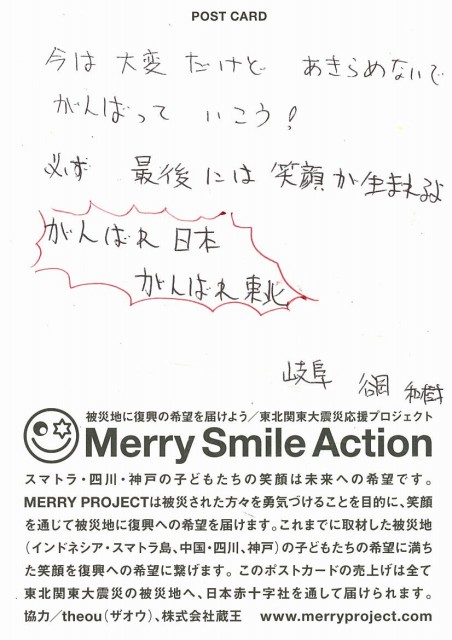 POST CARD
今は 大変 だけど あきらめないで
がんばって いこう！
必ず 最後には 笑顔が生まれるよ
がんばれ 日本
がんばれ 東北
岐阜 谷岡 和樹
被災地に復興の希望を届けよう／東北関東大震災応援プロジェクト
Merry Smile Action
スマトラ・四川・神戸の子どもたちの笑顔は未来への希望です。
MERRY PROJECTは被災された方々を勇気づけることを目的に、笑顔
を通じて被災地に復興への希望を届けます。これまでに取材した被災地
（インドネシア・スマトラ島、中国・四川、神戸）の子どもたちの希望に満ち
た笑顔を復興への希望に繋げます。このポストカードの売上げは全て
東北関東大震災の被災地へ、日本赤十字社を通して届けられます。
協力／theou（ザオウ）、株式会社蔵王 www.merryproject.com